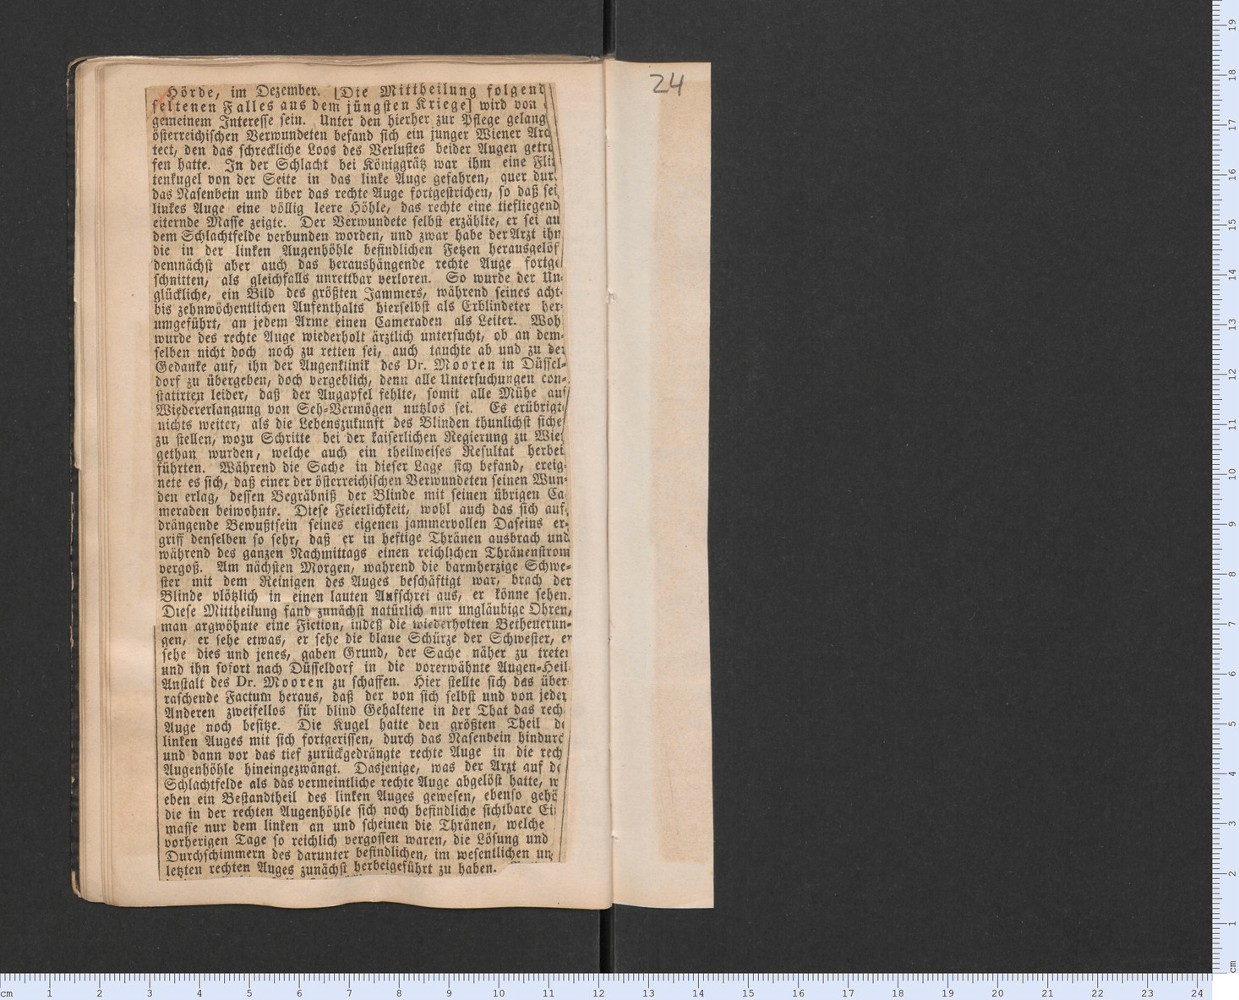 Hörde, im Dezember. [Die Mittheilung folgend
seltenen Falles aus dem jüngsten Kriege] wird von
gemeinem Interesse sein. Unter den hierher zur Pflege gelang
österreichischen Verwundeten befand sich ein junger Wiener Arc
tect, den das schreckliche Loos des Verlustes beider Augen getro
fen hatte. In der Schlacht bei Königgrätz war ihm eine Fli
tenkugel von der Seite in das linke Auge gefahren, quer dur
das Nasenbein und über das rechte Auge fortgestrichen, so daß sei
linkes Auge eine völlig leere Höhle, das rechte eine tiefliegend
eiternde Masse zeigte. Der Verwundete selbst erzählte, er sei au
dem Schlachtfelde verbunden worden, und zwar habe der Arzt ihn
die in der linken Augenhöhle befindlichen Fetzen herausgelös
demnächst aber auch das heraushängende rechte Auge fortge
schnitten, als gleichfalls unrettbar verloren. So wurde der Un-
glückliche, ein Bild des größten Jammers, während seines acht-
bis zehnwöchentlichen Aufenthalts hierselbst als Erblindeter her-
umgeführt, an jedem Arme einen Cameraden als Leiter. Woh
wurde des rechte Auge wiederholt ärztlich untersucht, ob an dem-
selben nicht doch noch zu retten sei, auch tauchte ab und zu der
Gedanke auf, ihn der Augenklinik des Dr. Mooren in Düssel-
dorf zu übergeben, doch vergeblich, denn alle Untersuchungen con-
statirten leider, daß der Augapfel fehlte, somit alle Mühe auf
Wiedererlangung von Seh-Vermögen nutzlos sei. Es erübrigt
nichts weiter, als die Lebenszukunft des Blinden thunlichst siche
zu stellen, wozu Schritte bei der kaiserlichen Regierung zu Wie
gethan wurden, welche auch ein theilweises Resultat herbei
führten. Während die Sache in dieser Lage sich befand, ereig-
nete es sich, daß einer der österreichischen Verwundeten seinen Wun-
den erlag, dessen Begräbniß der Blinde mit seinen übrigen Ca
meraden beiwohnte. Diese Feierlichkeit, wohl auch das sich auf-
drängende Bewußtsein seines eigenen jammervollen Daseins er-
griff denselben so sehr, daß er in heftige Thränen ausbrach und
während des ganzen Nachmittags einen reichlichen Thränenstrom
vergoß. Am nächsten Morgen, während die barmherzige Schwe-
ster mit dem Reinigen des Auges beschäftigt war, brach der
Blinde plötzlich in einen lauten Aufschrei aus, er könne sehen.
Diese Mittheilung fand zunächst natürlich nur ungläubige Ohren,
man argwöhnte eine Fiction, indeß die wiederholten Betheuerun-
gen, er sehe etwas, er sehe die blaue Schürze der Schwester, er
sehe dies und jenes, gaben Grund, der Sache näher zu treten
und ihn sofort nach Düsseldorf in die vorerwähnte Augen-Heil
Anstalt des Dr. Mooren zu schaffen. Hier stellte sich das über
raschende Factum heraus, daß der von sich selbst und von jedem
Anderen zweifellos für blind Gehaltene in der That das rech
Auge noch besitze. Die Kugel hatte den größten Theil de
linken Auges mit sich fortgerissen, durch das Nasenbein hindurc
und dann vor das tief zurückgedrängte rechte Auge in die rech
Augenhöhle hineingezwängt. Dasjenige, was der Arzt auf de
Schlachtfelde als das vermeintliche rechte Auge abgelöst hatte, w
eben ein Bestandtheil des linken Auges gewesen, ebenso gehö
die in der rechten Augenhöhle sich noch befindliche sichtbare Ei
masse nur dem linken an und scheinen die Thränen, welche
vorherigen Tage so reichlich vergossen waren, die Lösung und
Durchschimmern des darunter befindlichen, im wesentlichen un
letzten rechten Auges zunächst herbeigeführt zu haben.
24